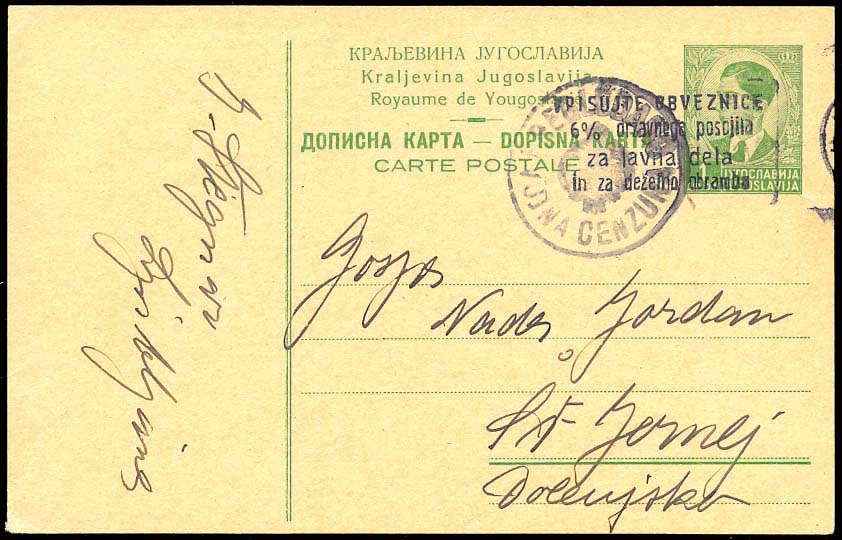 КРАЉЕВИНА ЈУГОСЛАВИЈА
Kraljevina Jugoslavija
Royaume de Yougos
ДОПИСНА КАРТА — DOPISNA KARTA
CARTE POSTALE
VPISUJTE OBVEZNICE
6% državnega posojila
za javna dela
in za deželno obrambo
ЈУГОСЛАВИЈА
JUGOSLAVIJA
VOJNA CENZURA
Gospa
Nada Jordan
Št Jernej
Dolenjsko
Ljubljana